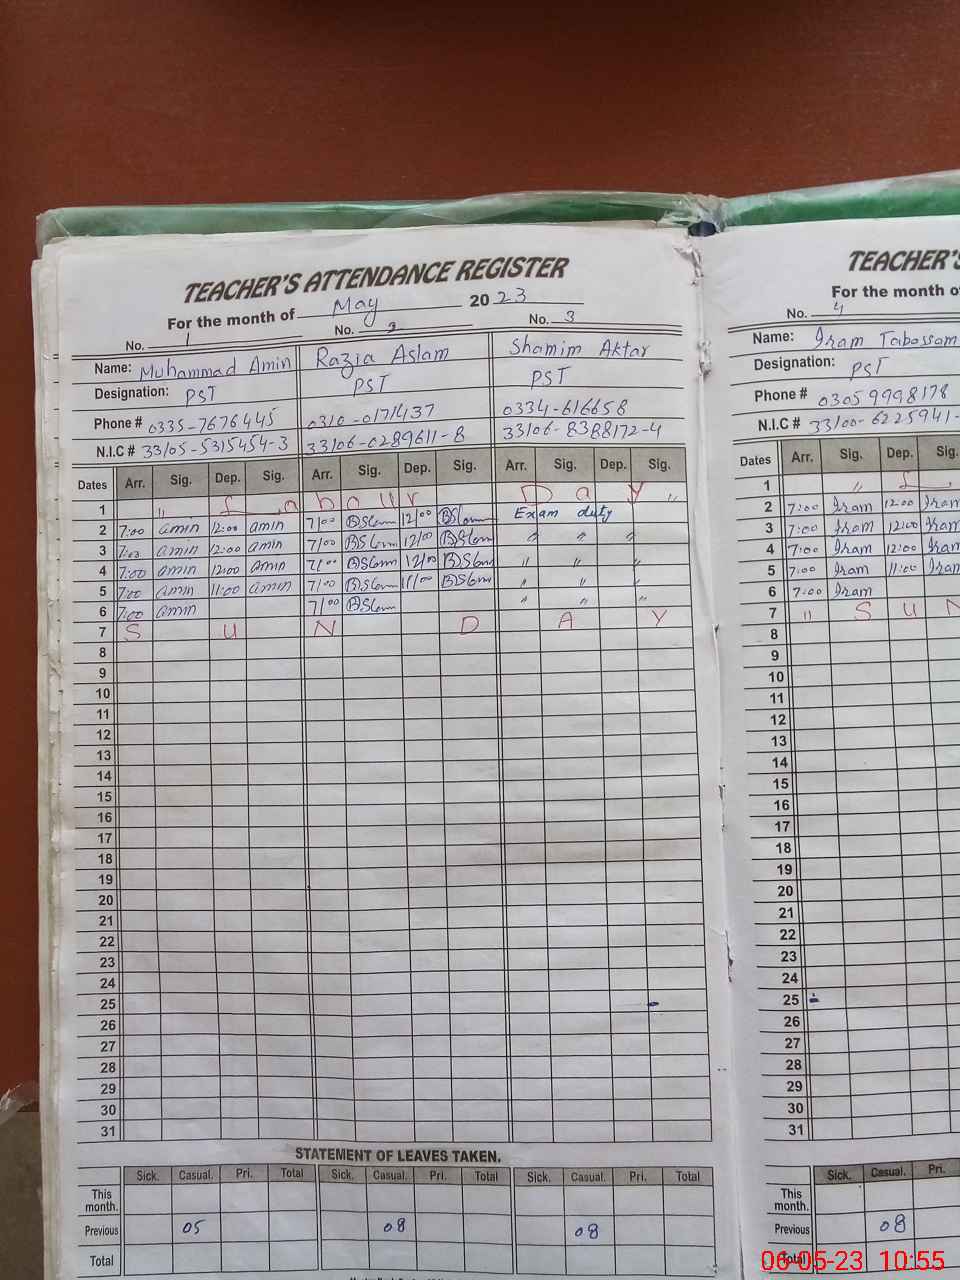 TEACHER'S ATTENDANCE REGISTER
For the month of May 2023
No. 1 No. 2 No. 3
Name: Muhammad Amin Razia Aslam Shamim Aktar
Designation: PST PST PST
Phone # 0335-7676445 0310-0171437 0334-616658
N.I.C # 33105-5315454-3 33106-0289611-8 33106-8388172-4
Dates Arr. Sig. Dep. Sig. Arr. Sig. Dep. Sig. Arr. Sig. Dep. Sig.
1 " L a b o u r D a y "
2 7:00 amin 12:00 amin 7/00 12/00 Exam duty
3 7:00 amin 12:00 amin 7/00 12/00 " " "
4 7:00 amin 12:00 amin 7/00 12/00 " " "
5 7:00 amin 11:00 amin 7/00 11/00 " " "
6 7:00 amin 7/00 " " "
7 S U N D A Y
8
9
10
11
12
13
14
15
16
17
18
19
20
21
22
23
24
25
26
27
28
29
30
31
STATEMENT OF LEAVES TAKEN.
Sick. Casual. Pri. Total Sick. Casual. Pri. Total Sick. Casual. Pri. Total
This month.
Previous 05 08 08
Total
TEACHER'S
For the month of
No. 4
Name: Iram Tabassam
Designation: PST
Phone # 03059998178
N.I.C # 33100-6225941-
Dates Arr. Sig. Dep. Sig.
1 " L
2 7:00 Iram 12:00 Iram
3 7:00 Iram 12:00 Iram
4 7:00 Iram 12:00 Iram
5 7:00 Iram 11:00 Iram
6 7:00 Iram
7 " S U N
8
9
10
11
12
13
14
15
16
17
18
19
20
21
22
23
24
25
26
27
28
29
30
31
Sick. Casual. Pri.
This month.
Previous 08
Total
06-05-23 10:55